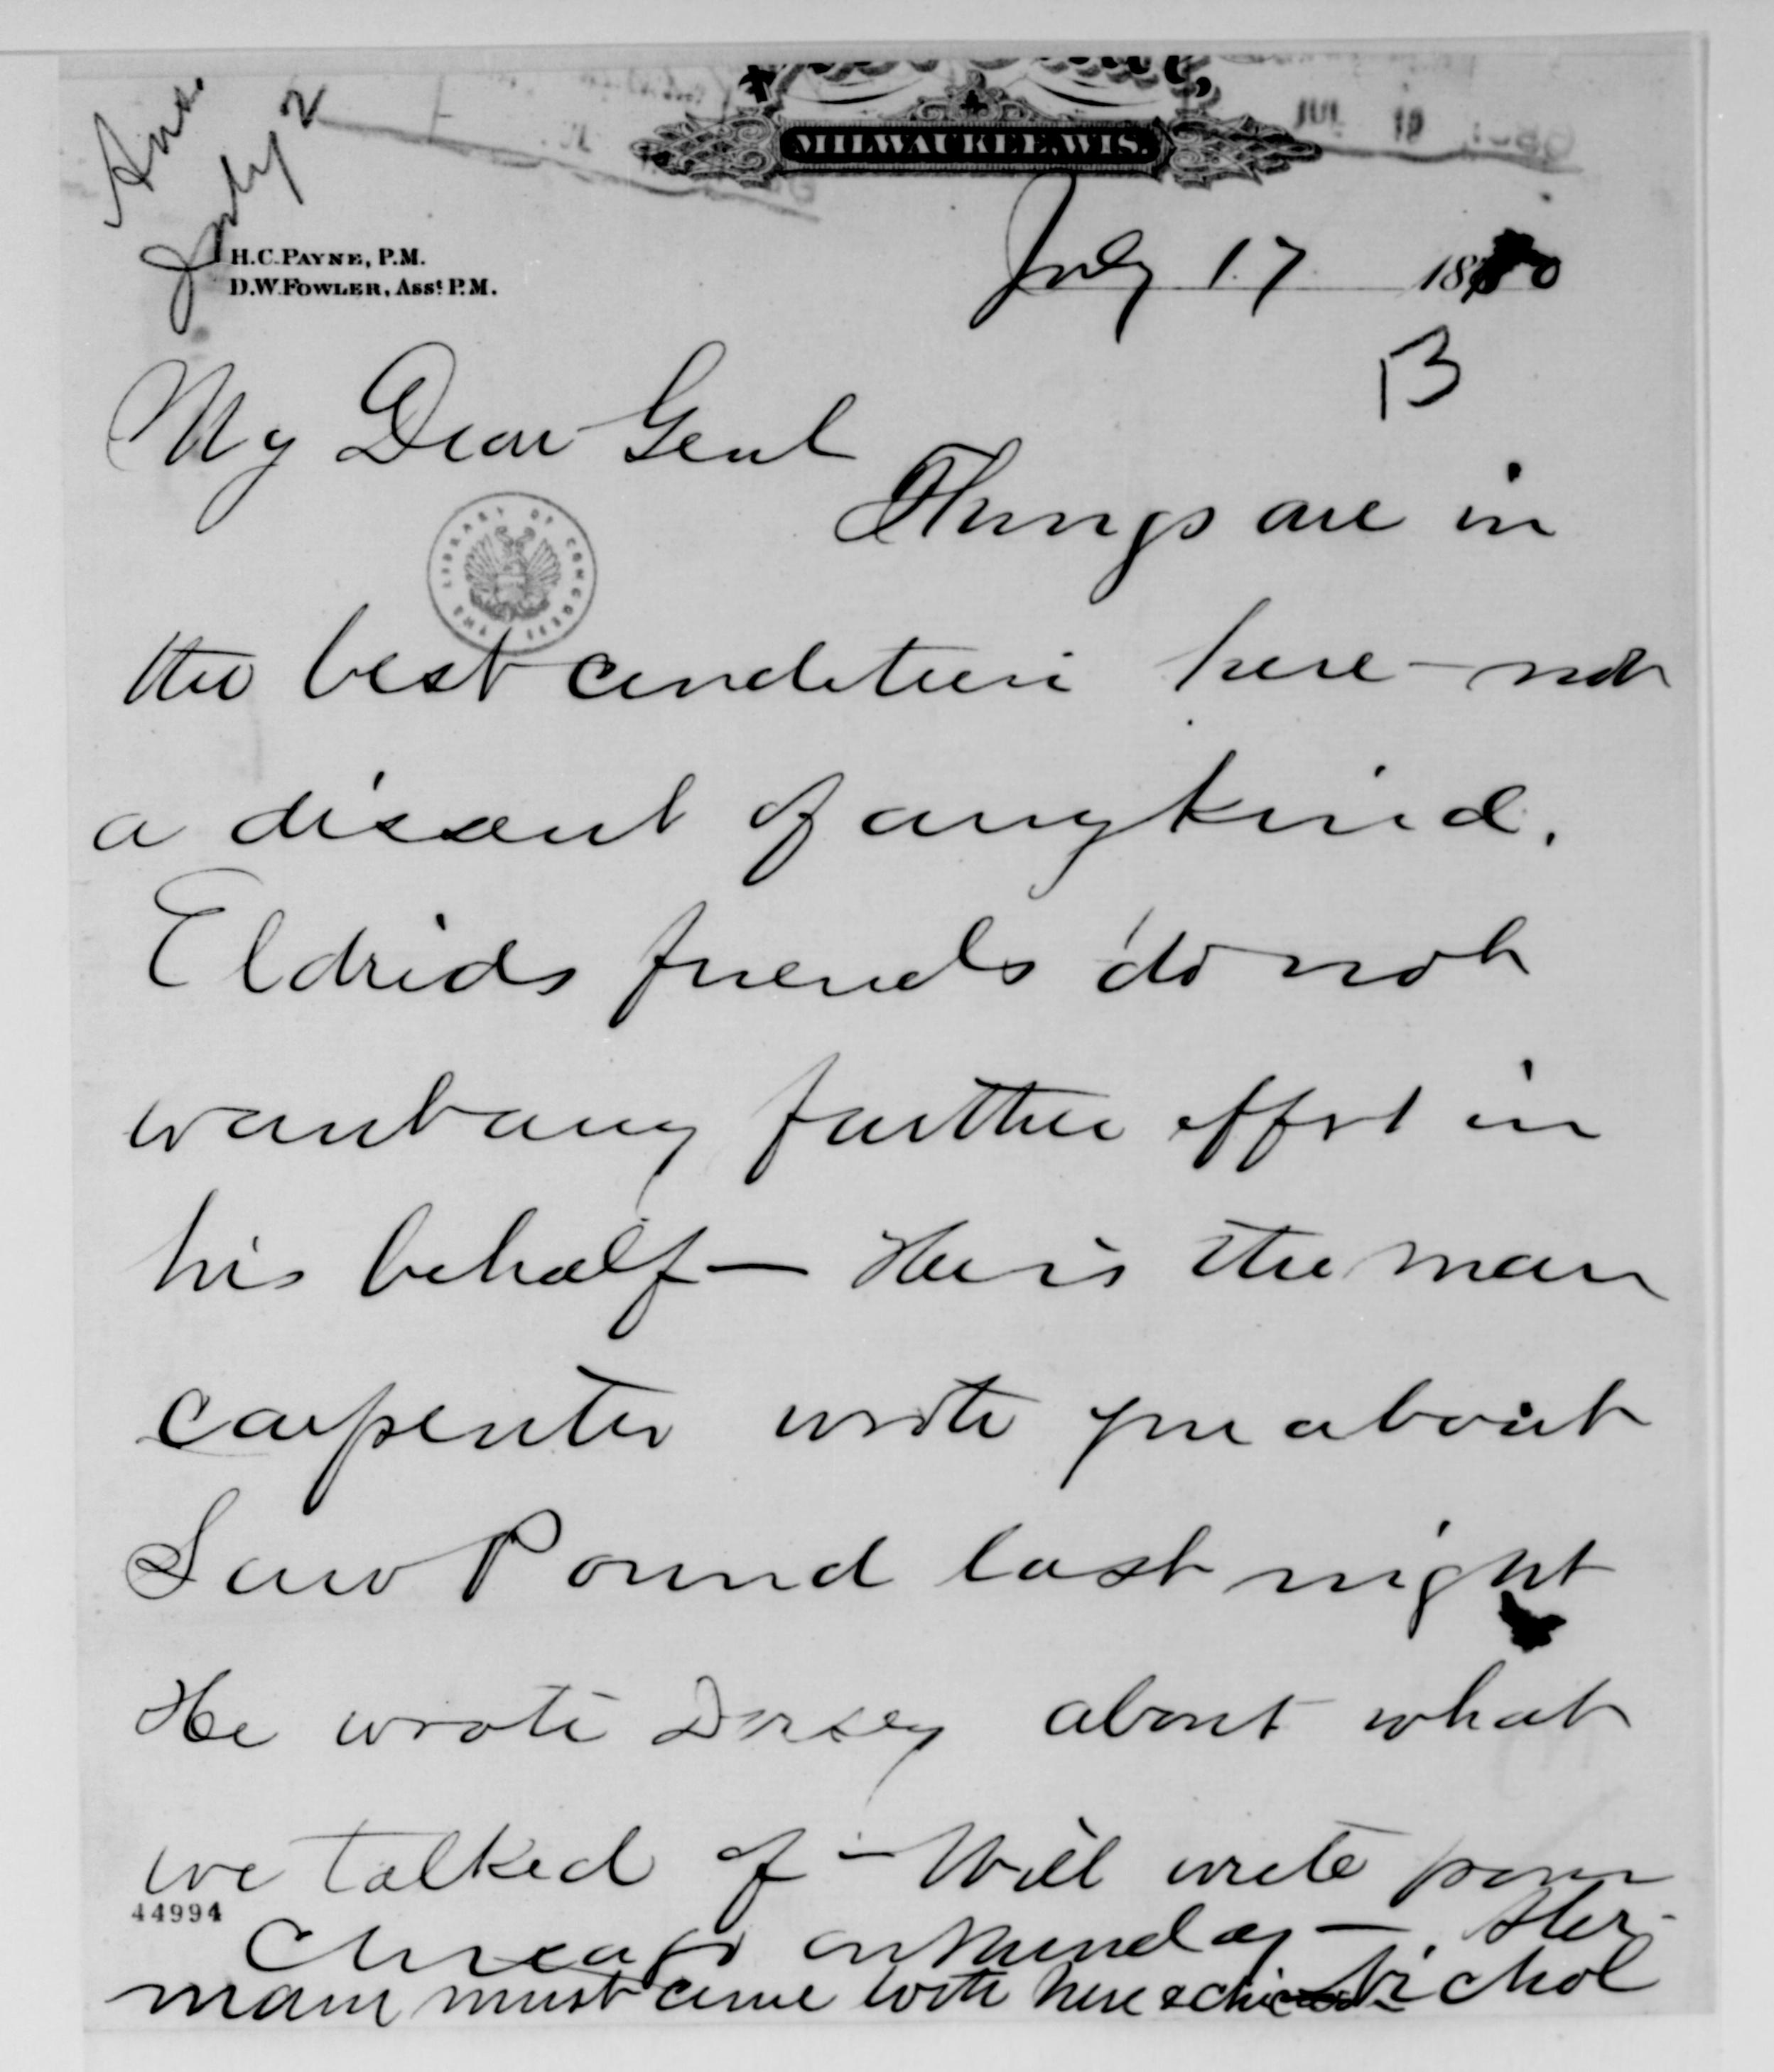 Ans.
July 2
MILWAUKEE, WIS.
H.C. PAYNE, P.M.
D.W. FOWLER, Asst. P.M.
July 17 1880
13
My Dear Genl
Things are in
THE LIBRARY OF CONGRESS
the best condition here - not
a dissent of any kind.
Eldrids friends do not
want any further effort in
his behalf - He is the man
Carpenter wrote you about
Saw Pound last night
He wrote Dorsey about what
we talked of - Will write from
44994
Chicago on Monday - Sher-
man must come both here &